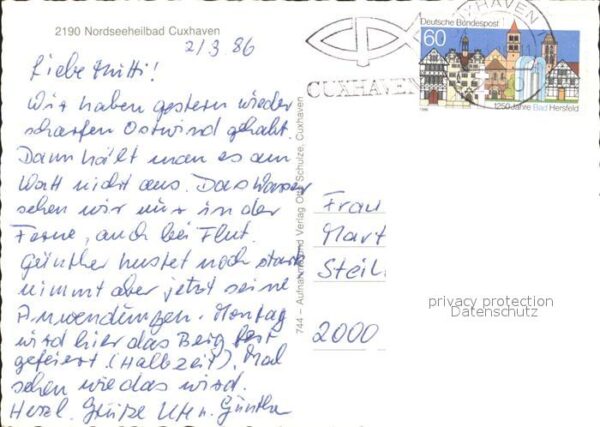 2190 Nordseeheilbad Cuxhaven
2/3.86
Liebe Mutti!
Wir haben gestern wieder
scharfen Ostwind gehabt.
Dann hält man es am
Watt nicht aus. Das Wasser
sehen wir nur in der
Ferne, auch bei Flut.
Günther hustet noch stark
nimmt aber jetzt seine
Anwendungen. Montag
wird hier das Bergfest
gefeiert (Halbzeit). Mal
sehen wie das wird.
Herzl. Grüße Ute u. Günther
744 – Aufnahme und Verlag Otto Schulze, Cuxhaven
CUXHAVEN
CUXHAVEN
Deutsche Bundespost
60
1250 Jahre Bad Hersfeld
Frau
Mart
Steil
2000
privacy protection
Datenschutz